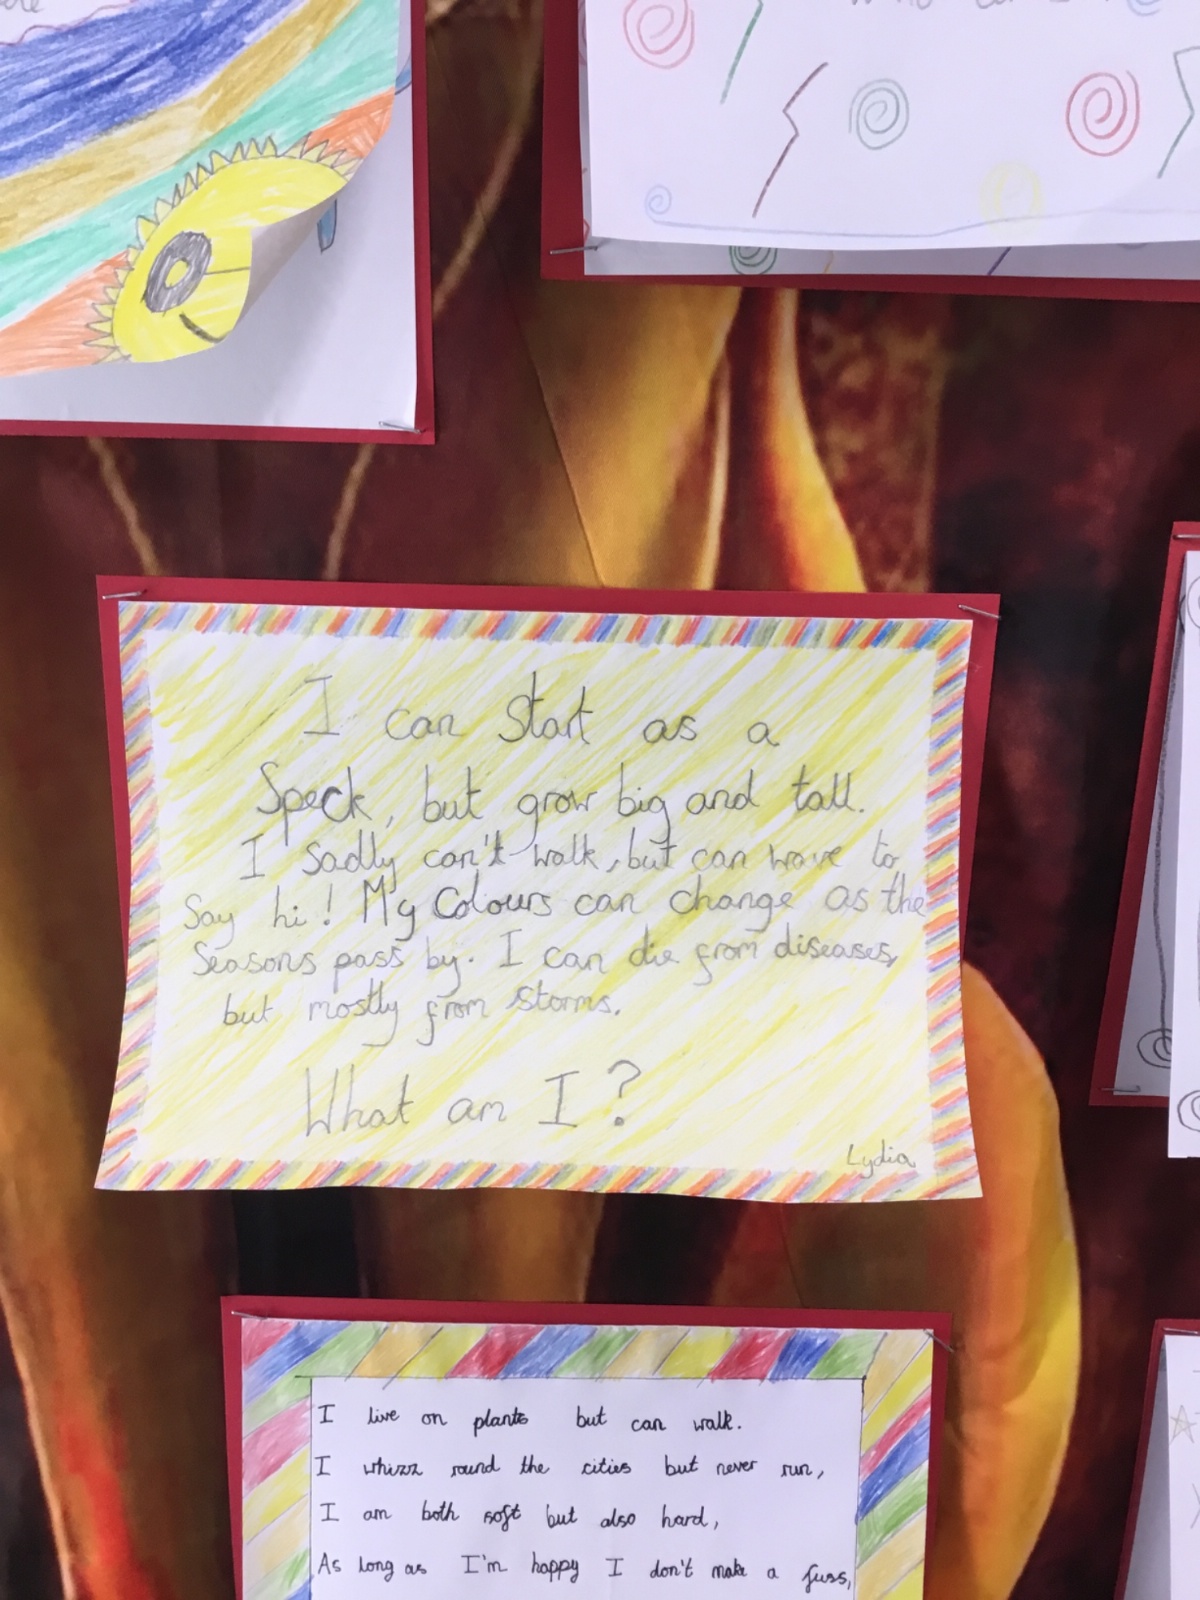 I can Start as a
Speck, but grow big and tall.
I sadly can't walk, but can wave to
Say hi! My Colours can change as the
Seasons pass by. I can die from diseases,
but mostly from Storms.
What am I?
Lydia
I live on plants but can walk.
I whizz round the cities but never run,
I am both soft but also hard,
As long as I'm happy I don't make a fuss,